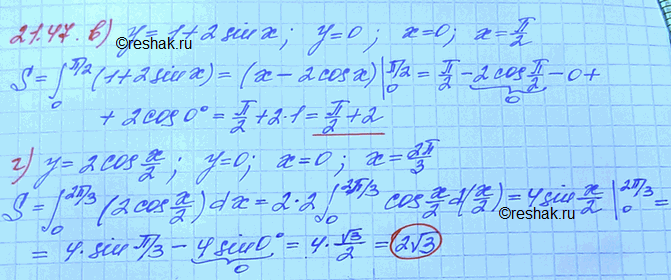 21.47. в) y = 1 + 2 sin x; y=0; x=0; x = π/2
©reshak.ru
S = ∫₀^π/2 (1+2 sin x) = (x − 2 cos x) |₀^π/2 = π/2 − 2 cos π/2 − 0 +
0
+ 2 cos 0° = π/2 + 2·1 = π/2 + 2
г) y = 2 cos x/2; y=0; x=0; x = 2π/3
S = ∫₀^2π/3 (2 cos x/2) dx = 2·2 ∫₀^2π/3 cos x/2 d(x/2) = 4 sin x/2 |₀^2π/3 =
= 4·sin π/3 − 4 sin 0° = 4·√3/2 = 2√3
0
©reshak.ru